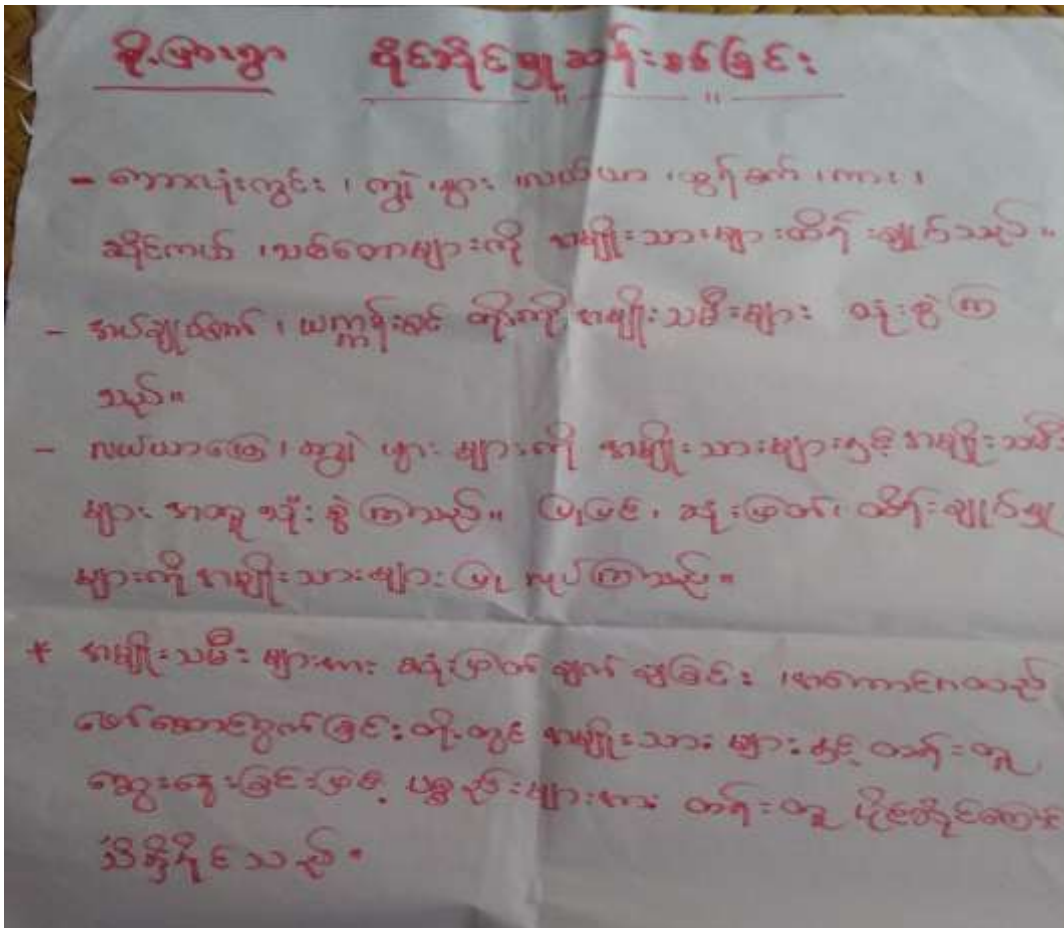 စိုးဖြားရွာ ပိုင်ဆိုင်မှုဆန်းစစ်ခြင်း
- ဘောလုံးကွင်း ၊ ကျွဲ ၊ နွား ၊ လယ်ယာ ၊ ထွန်စက် ၊ ကား ၊
ဆိုင်ကယ် ၊ သစ်တောများကို အမျိုးသားများထိန်းချုပ်သည်။
- အပ်ချုပ်စက် ၊ ယက္ကန်းစင် တို့ကို အမျိုးသမီးများ သုံးစွဲကြ
သည်။
- လယ်ယာမြေ ၊ ကျွဲ နွား များကို အမျိုးသားများနှင့် အမျိုးသမီး
များ အတူ သုံးစွဲကြသည်။ ပြုပြင် ၊ ဆုံးဖြတ် ၊ ထိန်းချုပ်မှု
များကို အမျိုးသားများ ပြုလုပ်ကြသည်။
* အမျိုးသမီး များအား ဆုံးဖြတ်ချက် ချခြင်း ၊ အကောင်အထည်
ဖော်ဆောင်ရွက်ခြင်း တို့တွင် အမျိုးသား များနှင့် တန်းတူ
ဆွေးနွေးခြင်းဖြင့် ပစ္စည်းများအား တန်းတူ ပိုင်ဆိုင်ကြောင်း
သိရှိနိုင်သည်။